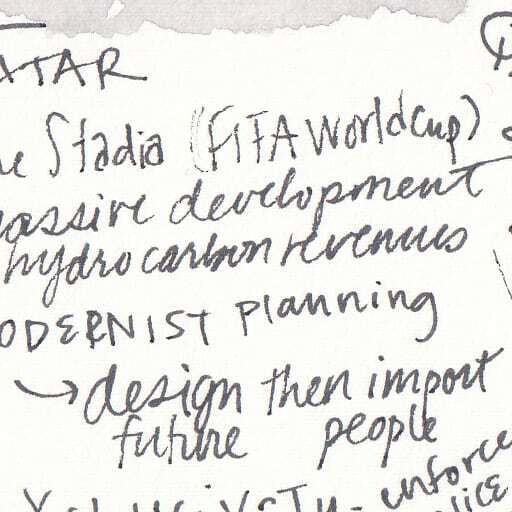 ATAR
ue Stadia (FIFA World Cup)
assive development
hydrocarbon revenues
ODERNIST planning
→ design then import
future people
enforce
lice